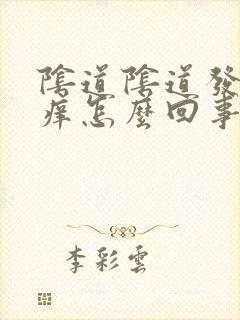 陰道陰道發
痒怎麼回事
李彩雲